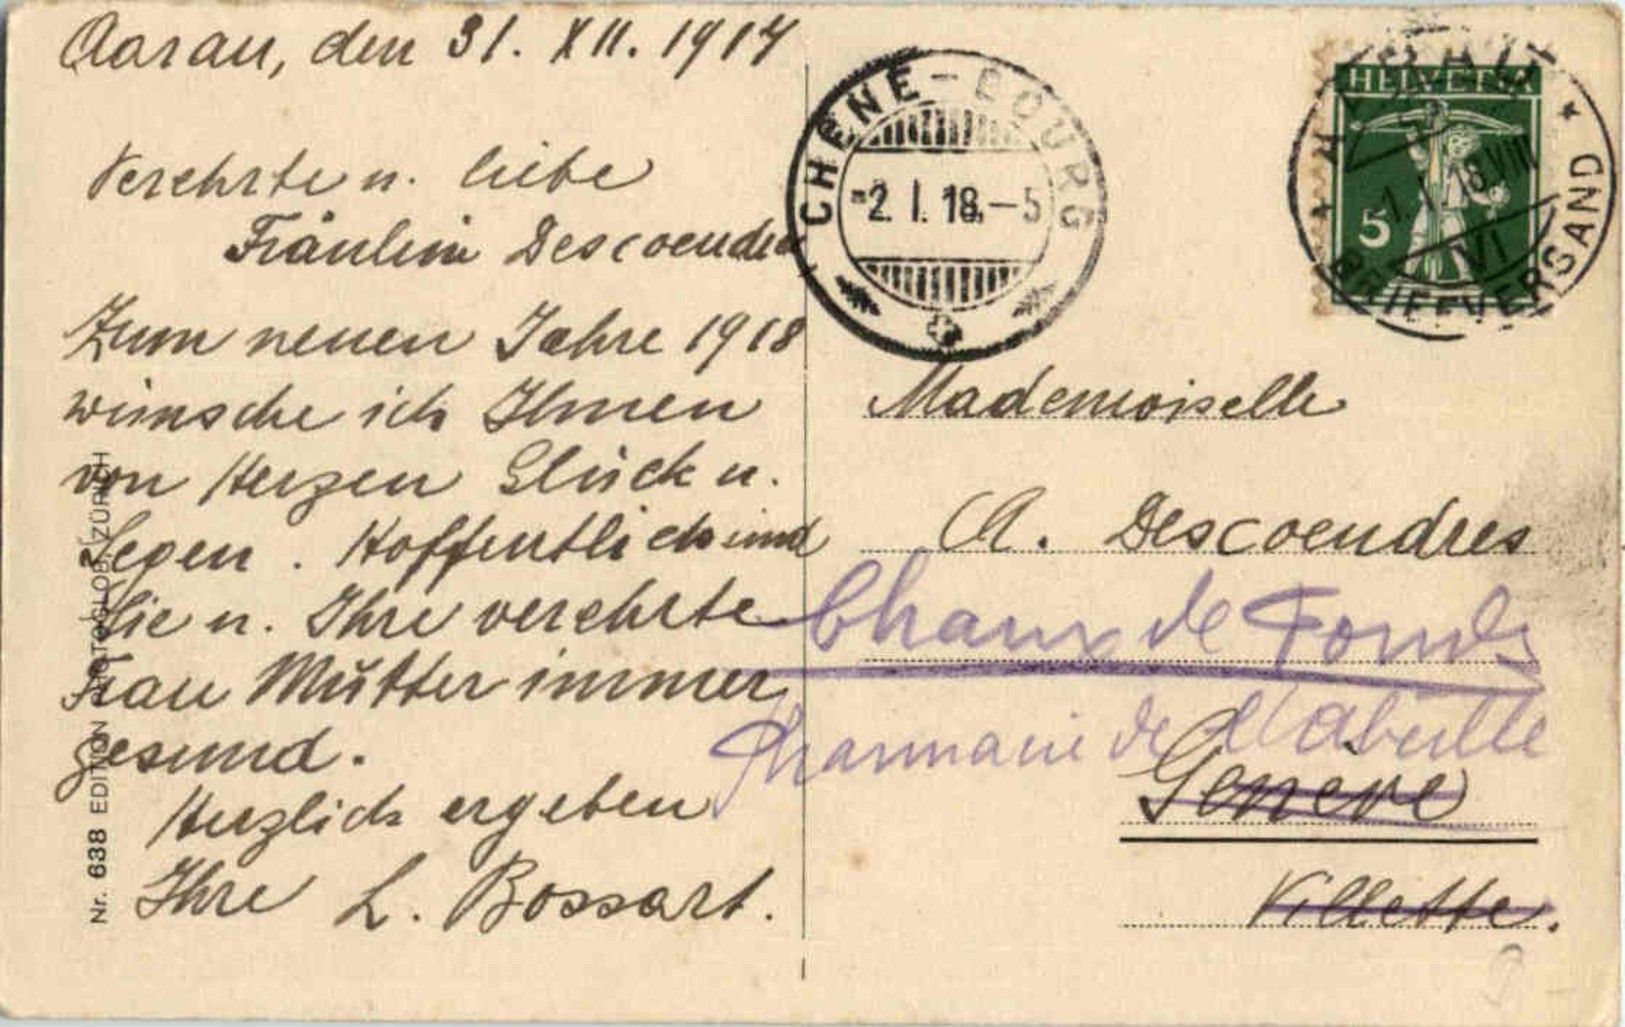 Aarau, den 31. XII. 1917
Verehrte u. liebe
Fräulein Descoeudres
Zum neuen Jahre 1918
wünsche ich Ihnen
von Herzen Glück u.
Segen. Hoffentlich sind
Sie u. Ihre verehrte
Frau Mutter immer
gesund.
Herzlich ergeben
Ihre L. Bossart.
Nr. 638 EDITION PHOTOGLOB, ZÜRICH
CHÊNE-BOURG
-2. I. 18.-5
HELVETIA
5
AARAU
1. I. 18. VIII
VI
BRIEFVERSAND
Mademoiselle
A. Descoeudres
Chaux de Fonds
Pharmacie de l'Abeille
Genève
Villette.